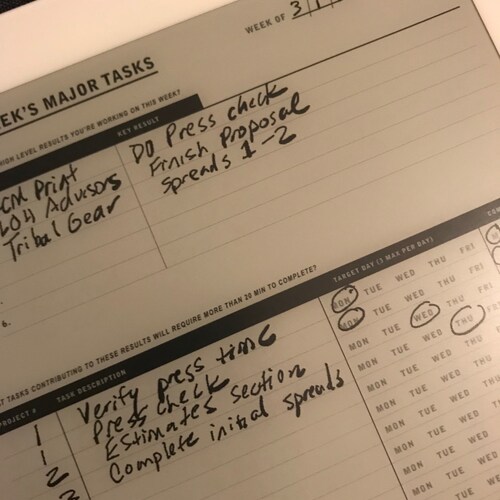 WEEK OF 3/1
EK'S MAJOR TASKS
HIGH LEVEL RESULTS YOU'RE WORKING ON THIS WEEK?
KEY RESULT
Print DO Press check
Advisors Finish Proposal
Tribal Gear Spreads 1-2
6.
TASKS CONTRIBUTING TO THESE RESULTS WILL REQUIRE MORE THAN 20 MIN TO COMPLETE? TARGET DAY (3 MAX PER DAY)
PROJECT # TASK DESCRIPTION
1 Verify press time MON TUE WED THU FRI
1 Press check MON TUE WED THU FRI
2 Estimates section MON TUE WED THU FRI
3 Complete initial spreads MON TUE WED THU FRI
MON TUE WED THU
MON TUE WED THU
MON TUE WED THU
MON TUE WED
MON TUE WED
MON TUE